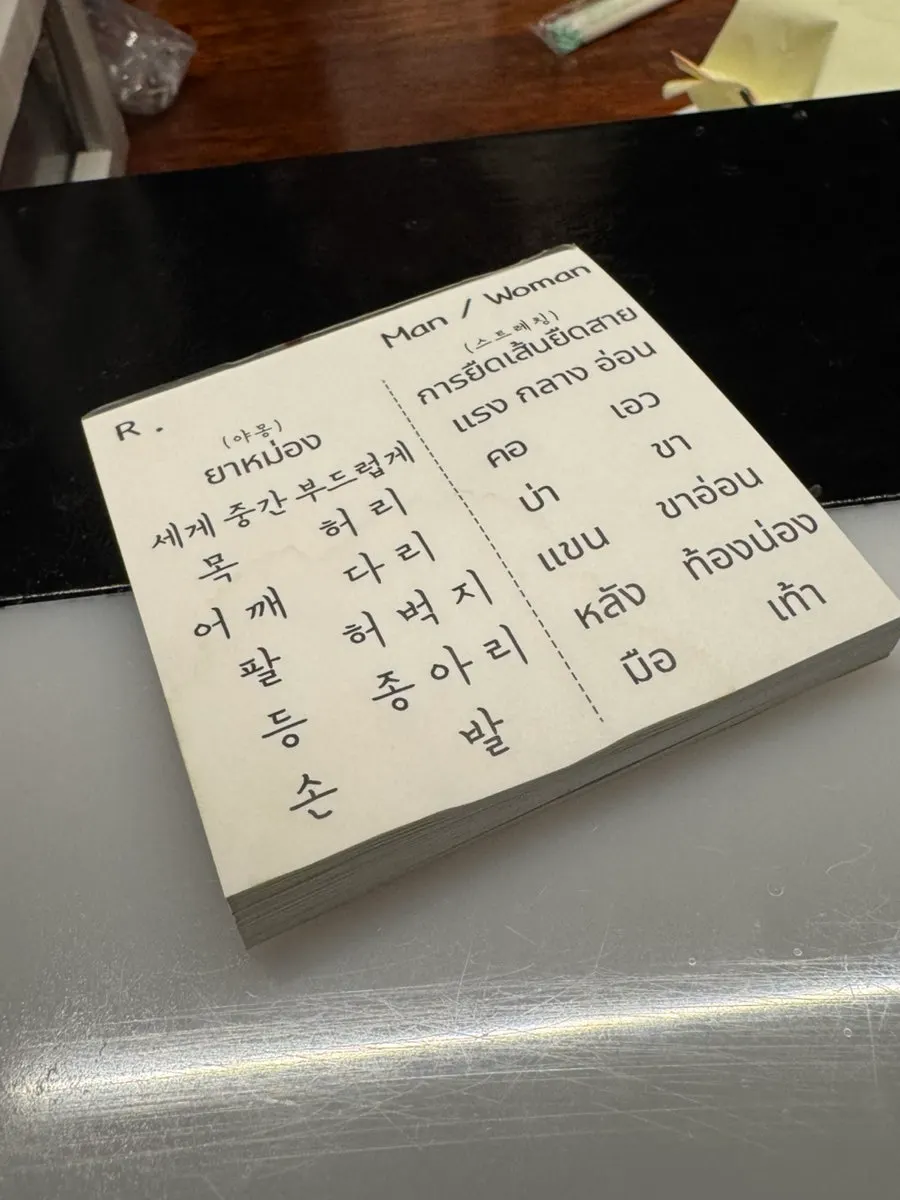 Man / Woman
R.
(야몽)
ยาหม่อง
세게 중간 부드럽게
목 허리
어깨 다리
팔 허벅지
등 종아리
손 발
(스트레칭)
การยืดเส้นยืดสาย
แรง กลาง อ่อน
คอ เอว
บ่า ขา
แขน ขาอ่อน
หลัง ท้องน่อง
มือ เท้า